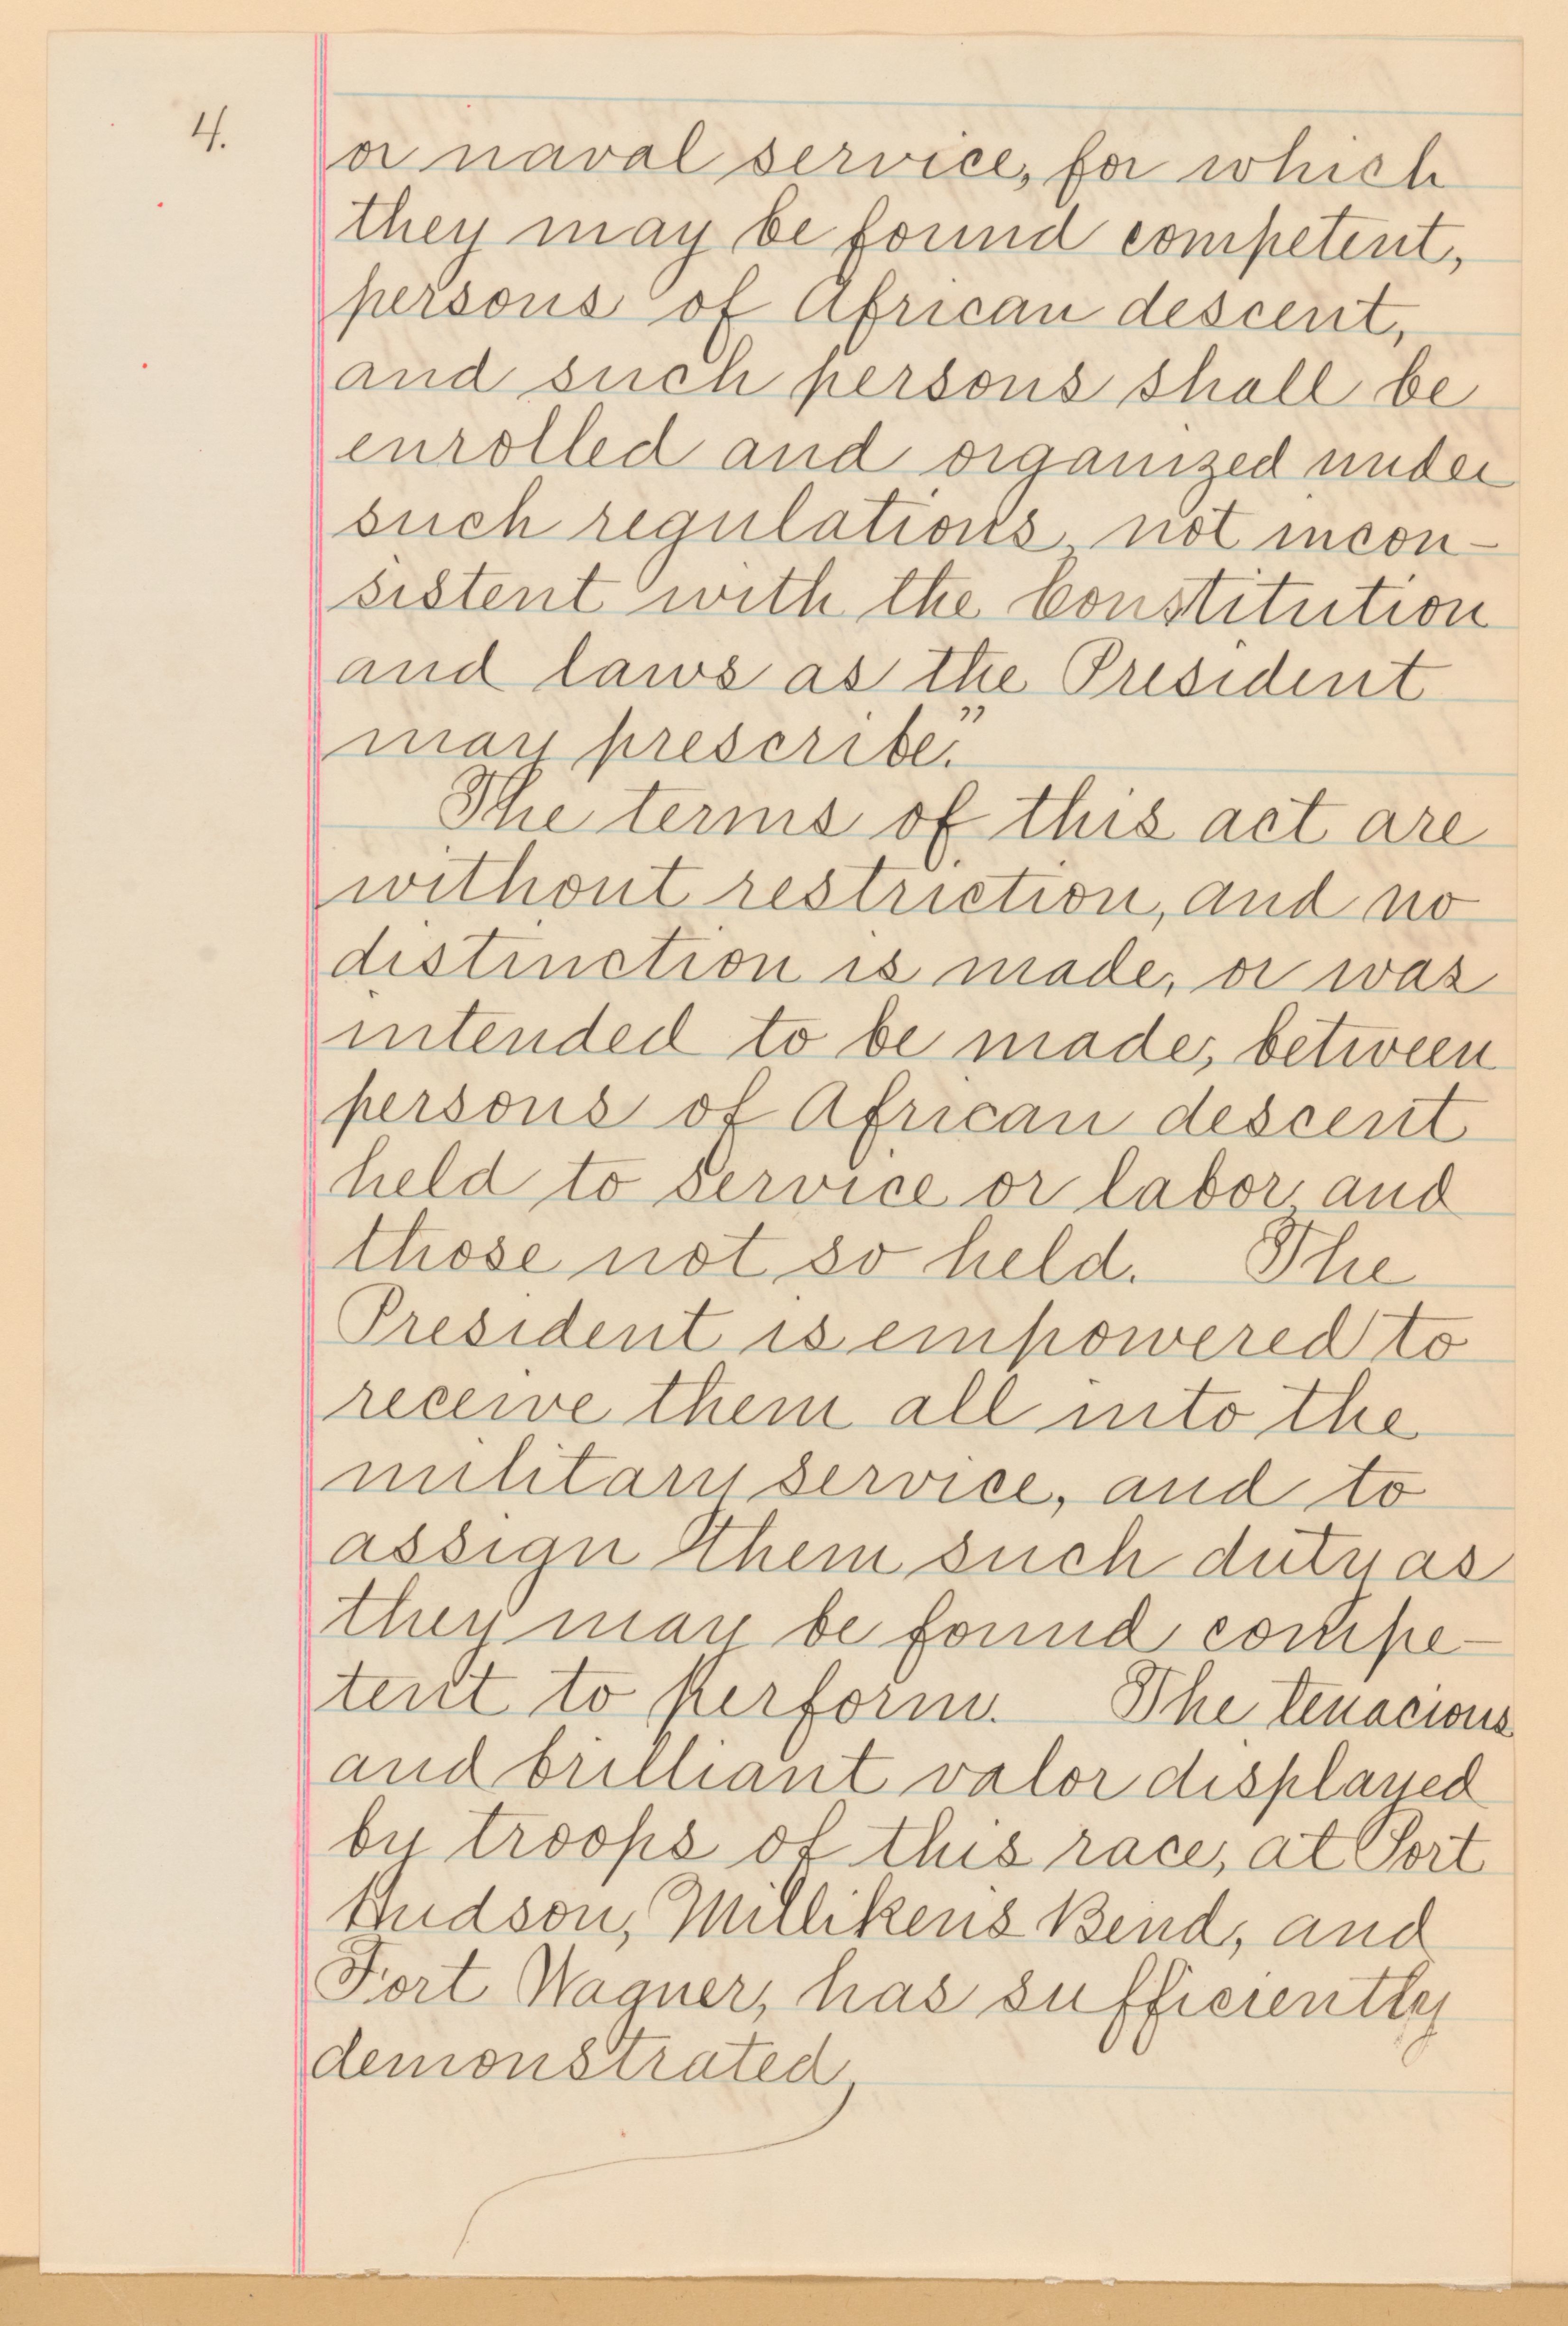 4.
or naval service, for which
they may be found competent,
persons of African descent,
and such persons shall be
enrolled and organized under
such regulations, not incon-
sistent with the Constitution
and laws as the President
may prescribe."
The terms of this act are
without restriction, and no
distinction is made, or was
intended to be made, between
persons of African descent
held to service or labor, and
those not so held. The
President is empowered to
receive them all into the
military service, and to
assign them such duty as
they may be found compe-
tent to perform. The tenacious
and brilliant valor displayed
by troops of this race, at Port
Hudson, Millikens Bend, and
Fort Wagner, has sufficiently
demonstrated,